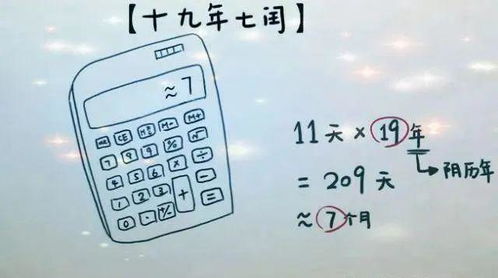 【十九年七闰】
≈7
MR CE M- M+
7 8 9 % √
4 5 6 × ÷
1 2 3 + -
0 · +/- =
11天×19年
阴历年
=209天
≈7个月